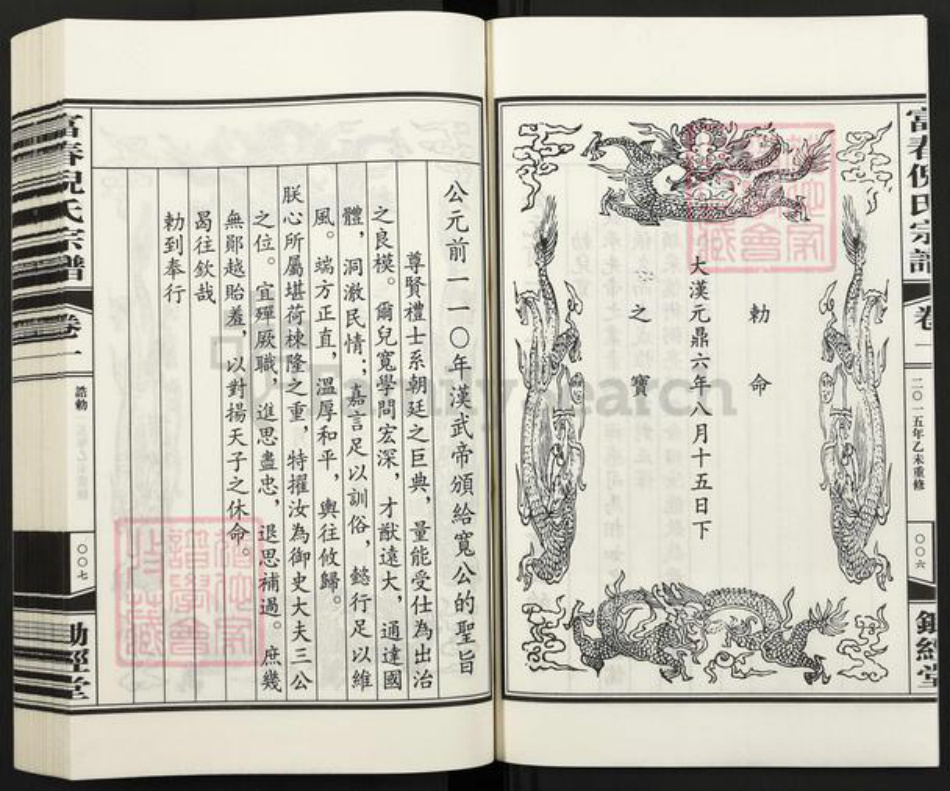 富春倪氏宗譜
卷一
二〇一五年乙未重修
〇〇六
鋤經堂
勅命
之寶
大漢元鼎六年八月十五日下
公元前一一〇年漢武帝頒給寬公的聖旨
尊賢禮士系朝廷之巨典，量能受仕為出治
之良模。爾兒寬學問宏深，才猷遠大，通達國
體，洞澈民情；嘉言足以訓俗，懿行足以維
風。端方正直，溫厚和平，輿往攸歸。
朕心所屬堪荷棟隆之重，特擢汝為御史大夫三公
之位。宜殫厥職，進思盡忠，退思補過。庶幾
無鄖越貽羞，以對揚天子之休命。
曷往欽哉
勅到奉行
富春倪氏宗譜
卷一
誥勅
〇〇七
鋤經堂
FamilySearch